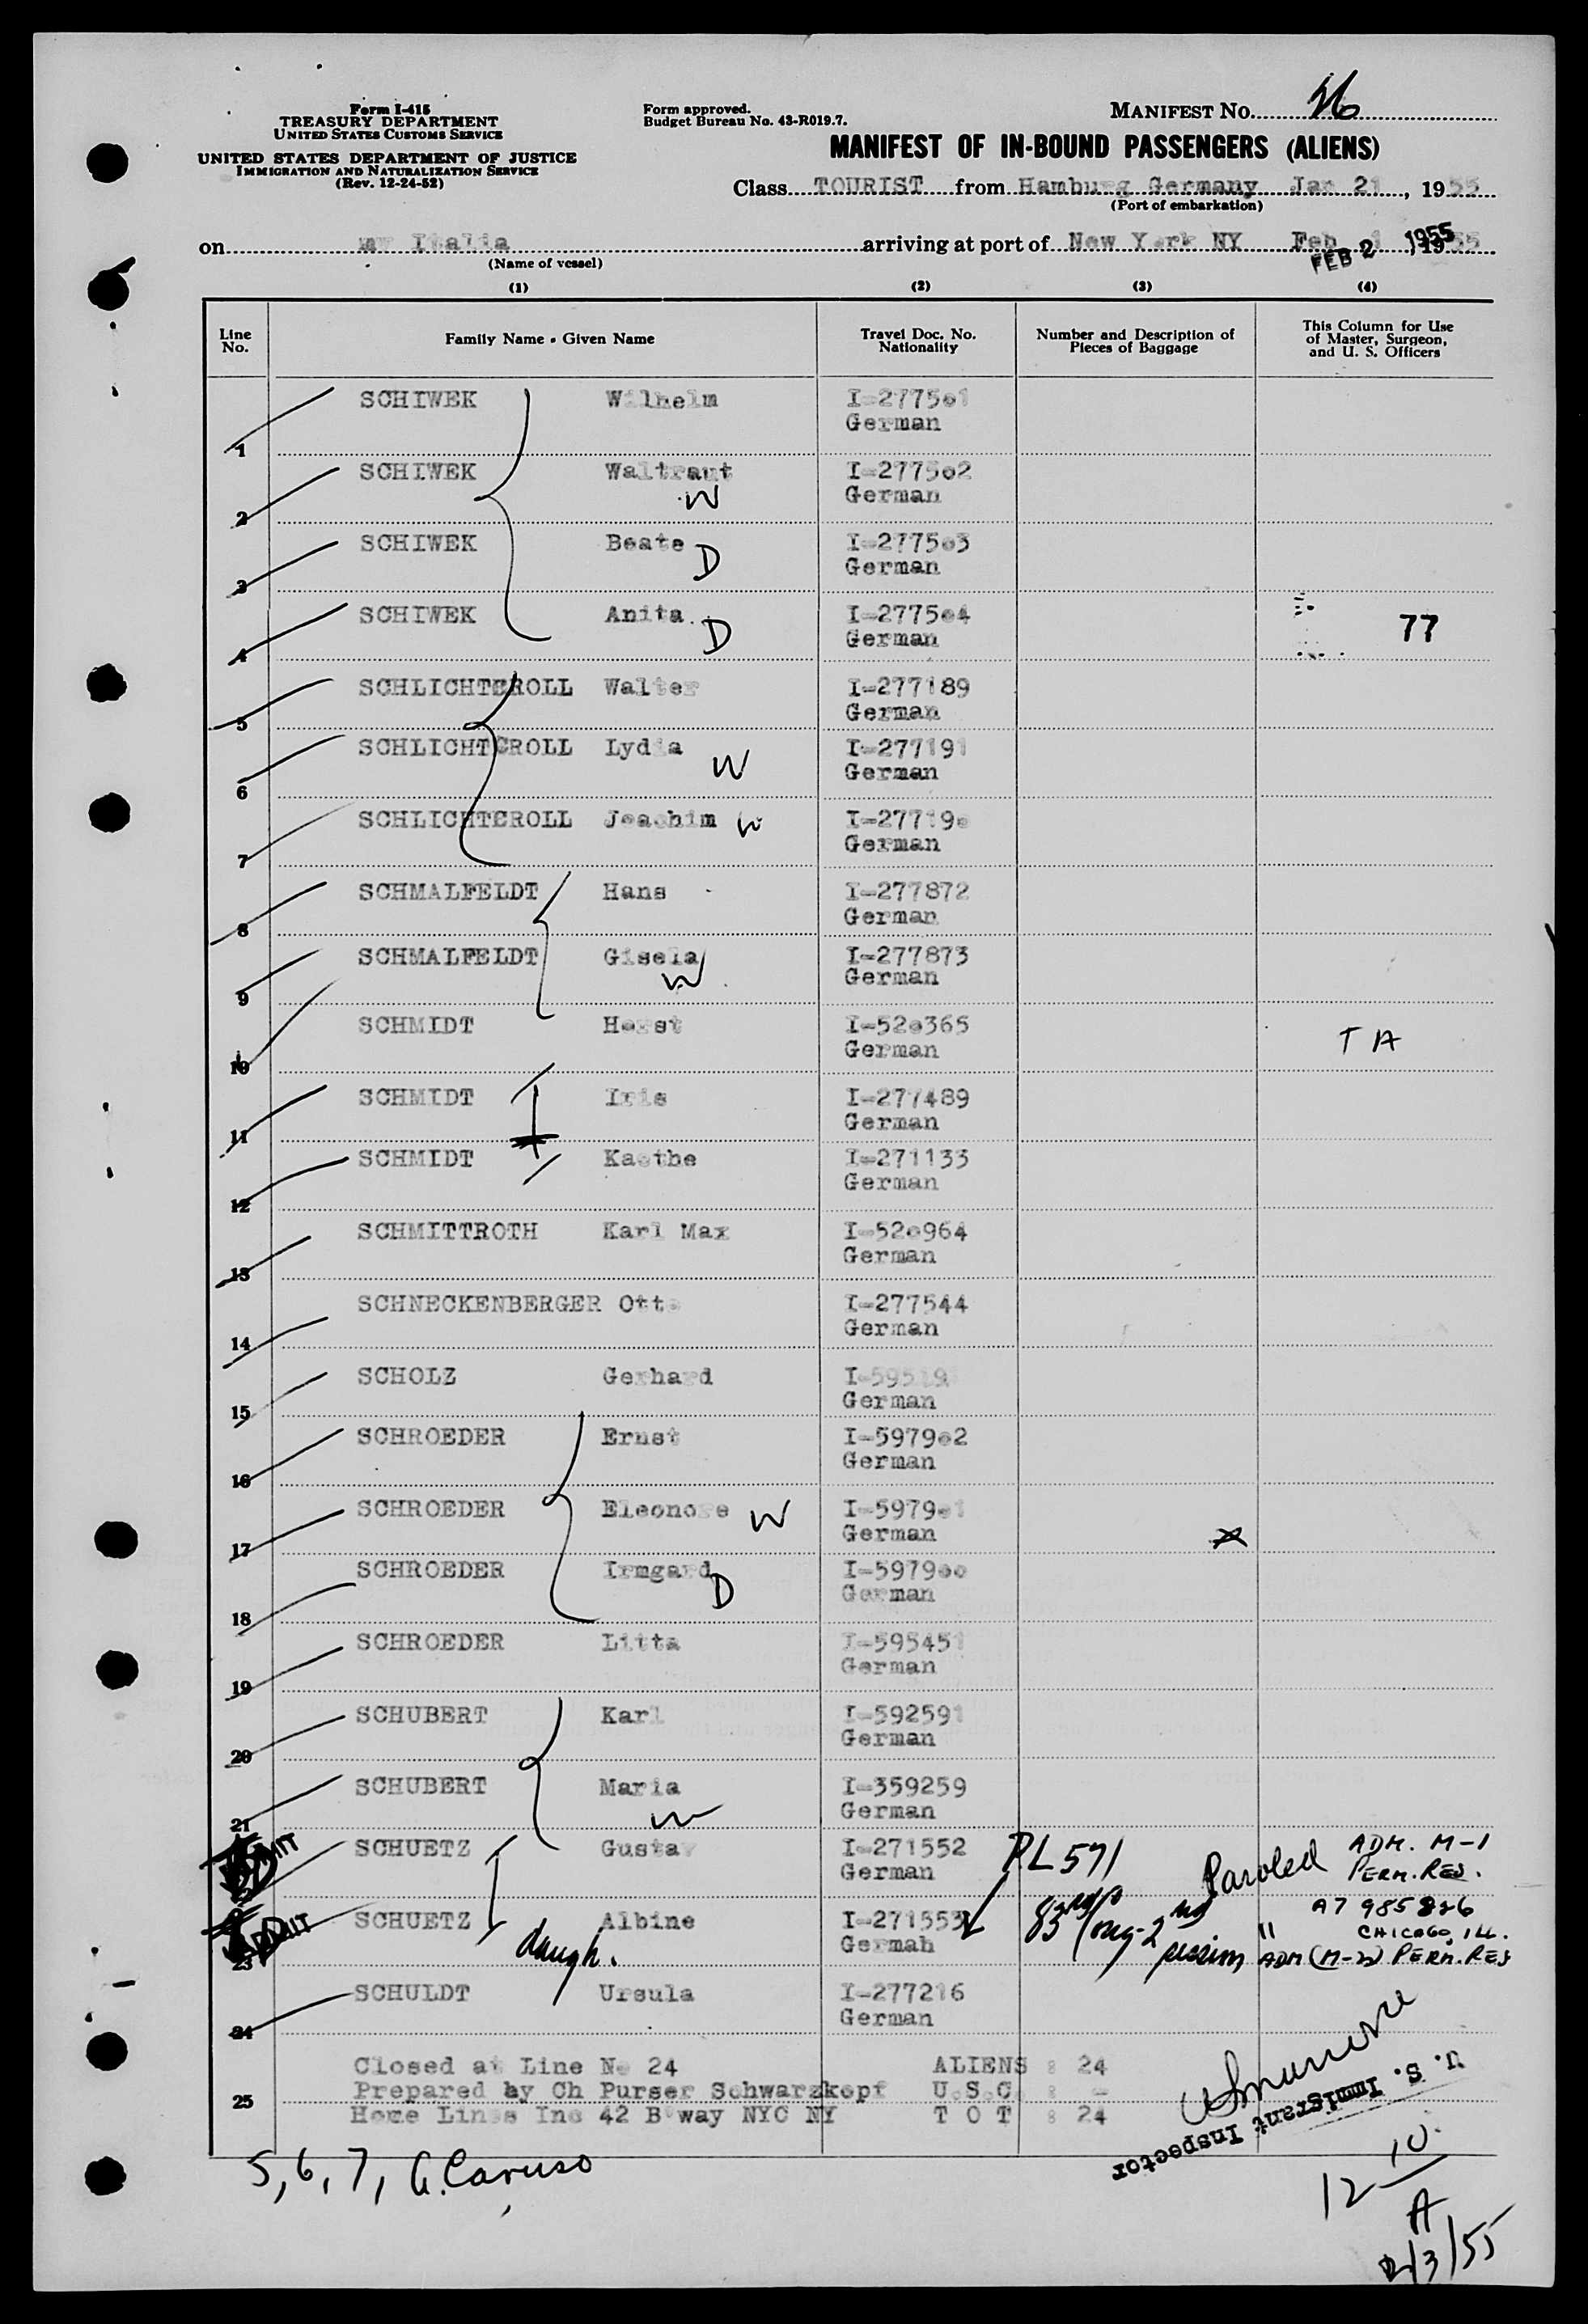 Form I-415
TREASURY DEPARTMENT
UNITED STATES CUSTOMS SERVICE
UNITED STATES DEPARTMENT OF JUSTICE
IMMIGRATION AND NATURALIZATION SERVICE
(Rev. 12-24-52)
Form approved.
Budget Bureau No. 43-R019.7.
MANIFEST No.
MANIFEST OF IN-BOUND PASSENGERS (ALIENS)
Class TOURIST from Hamburg Germany Jan 21, 1955
(Port of embarkation)
on mv Italia arriving at port of New York NY Feb 1, 1955
FEB 2 1955
(Name of vessel)
(1) (2) (3) (4)
Line No. Family Name - Given Name Travel Doc. No. Nationality Number and Description of Pieces of Baggage This Column for Use of Master, Surgeon, and U. S. Officers
1 SCHIWEK Wilhelm I-277501
German
2 SCHIWEK Waltraut W I-277502
German
3 SCHIWEK Beate D I-277503
German
4 SCHIWEK Anita D I-277504
German 77
5 SCHLICHTEROLL Walter I-277189
German
6 SCHLICHTCROLL Lydia W I-277191
German
7 SCHLICHTCROLL Joachim I-277190
German
8 SCHMALFELDT Hans I-277872
German
9 SCHMALFELDT Gisela W I-277873
German
10 SCHMIDT Horst I-520365
German T A
11 SCHMIDT Iris I-277489
German
12 SCHMIDT Kaethe I-271133
German
13 SCHMITTROTH Karl Max I-520964
German
14 SCHNECKENBERGER Otto I-277544
German
15 SCHOLZ Gerhard
German
16 SCHROEDER Ernst I-597902
German
17 SCHROEDER Eleonore W I-597901
German
18 SCHROEDER Irmgard D I-597900
German
19 SCHROEDER Litta I-595451
German
20 SCHUBERT Karl I-592591
German
21 SCHUBERT Maria W I-359259
German
ADMIT SCHUETZ Gustav I-271552
German PL 571 Paroled ADM. M-1
PERM. RES.
ADMIT 23 SCHUETZ Albine I-271553
daugh. German 83rd Cong-2nd session " A7 985826
CHICAGO, ILL.
ADM (M-2) PERM. RES
24 SCHULDT Ursula I-277216
German
25 Closed at Line No 24 ALIENS : 24
Prepared by Ch Purser Schwarzkopf U.S.C. : -
Home Lines Inc 42 B'way NYC NY T O T : 24
U. S. Immigrant Inspector
5, 6, 7, G. Caruso
12 10
A
2/3/55